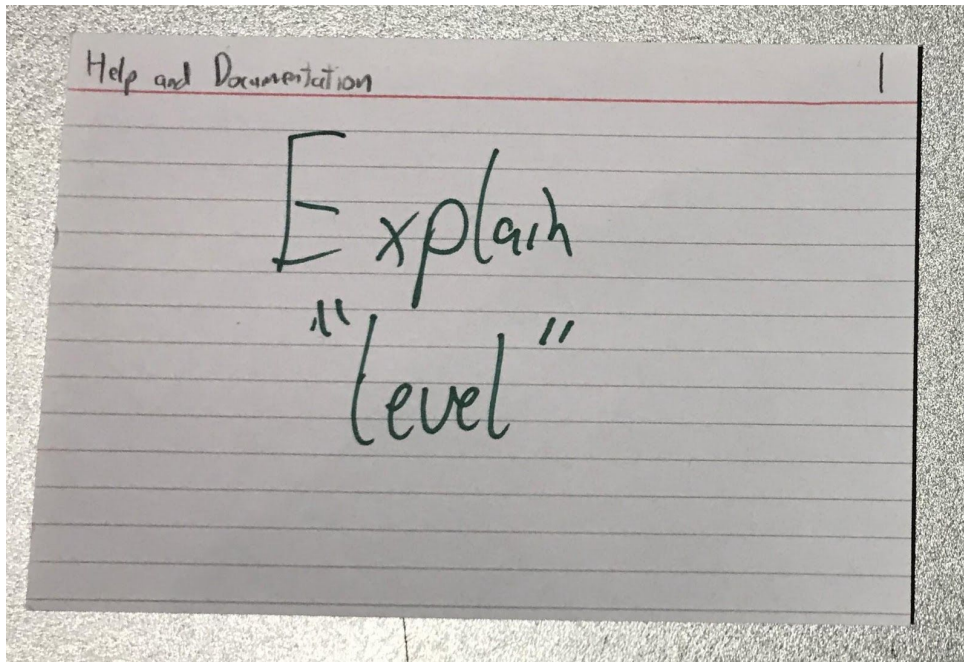 Help and Documentation 1
Explain
"level"